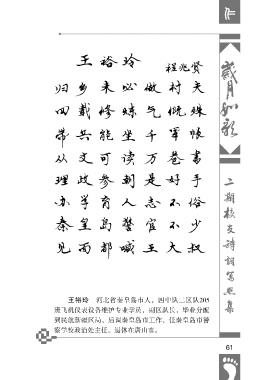 作
岁月如歌
二期校友诗词写照集
王裕玲
程兆贤
归乡未必做村夫
四载修炼气概殊
带兵能坐千军帐
从文可读万卷书
理政参朝是好手
办学育人志不俗
秦皇岛警官不少
见面都喊王大叔
王裕玲 河北省秦皇岛市人，四中队二区队205
班飞机仪表设备维护专业学员，副区队长，毕业分配
到民航新疆区局，后调秦皇岛市工作，任秦皇岛市警
察学校政治处主任。退休在唐山市。
61